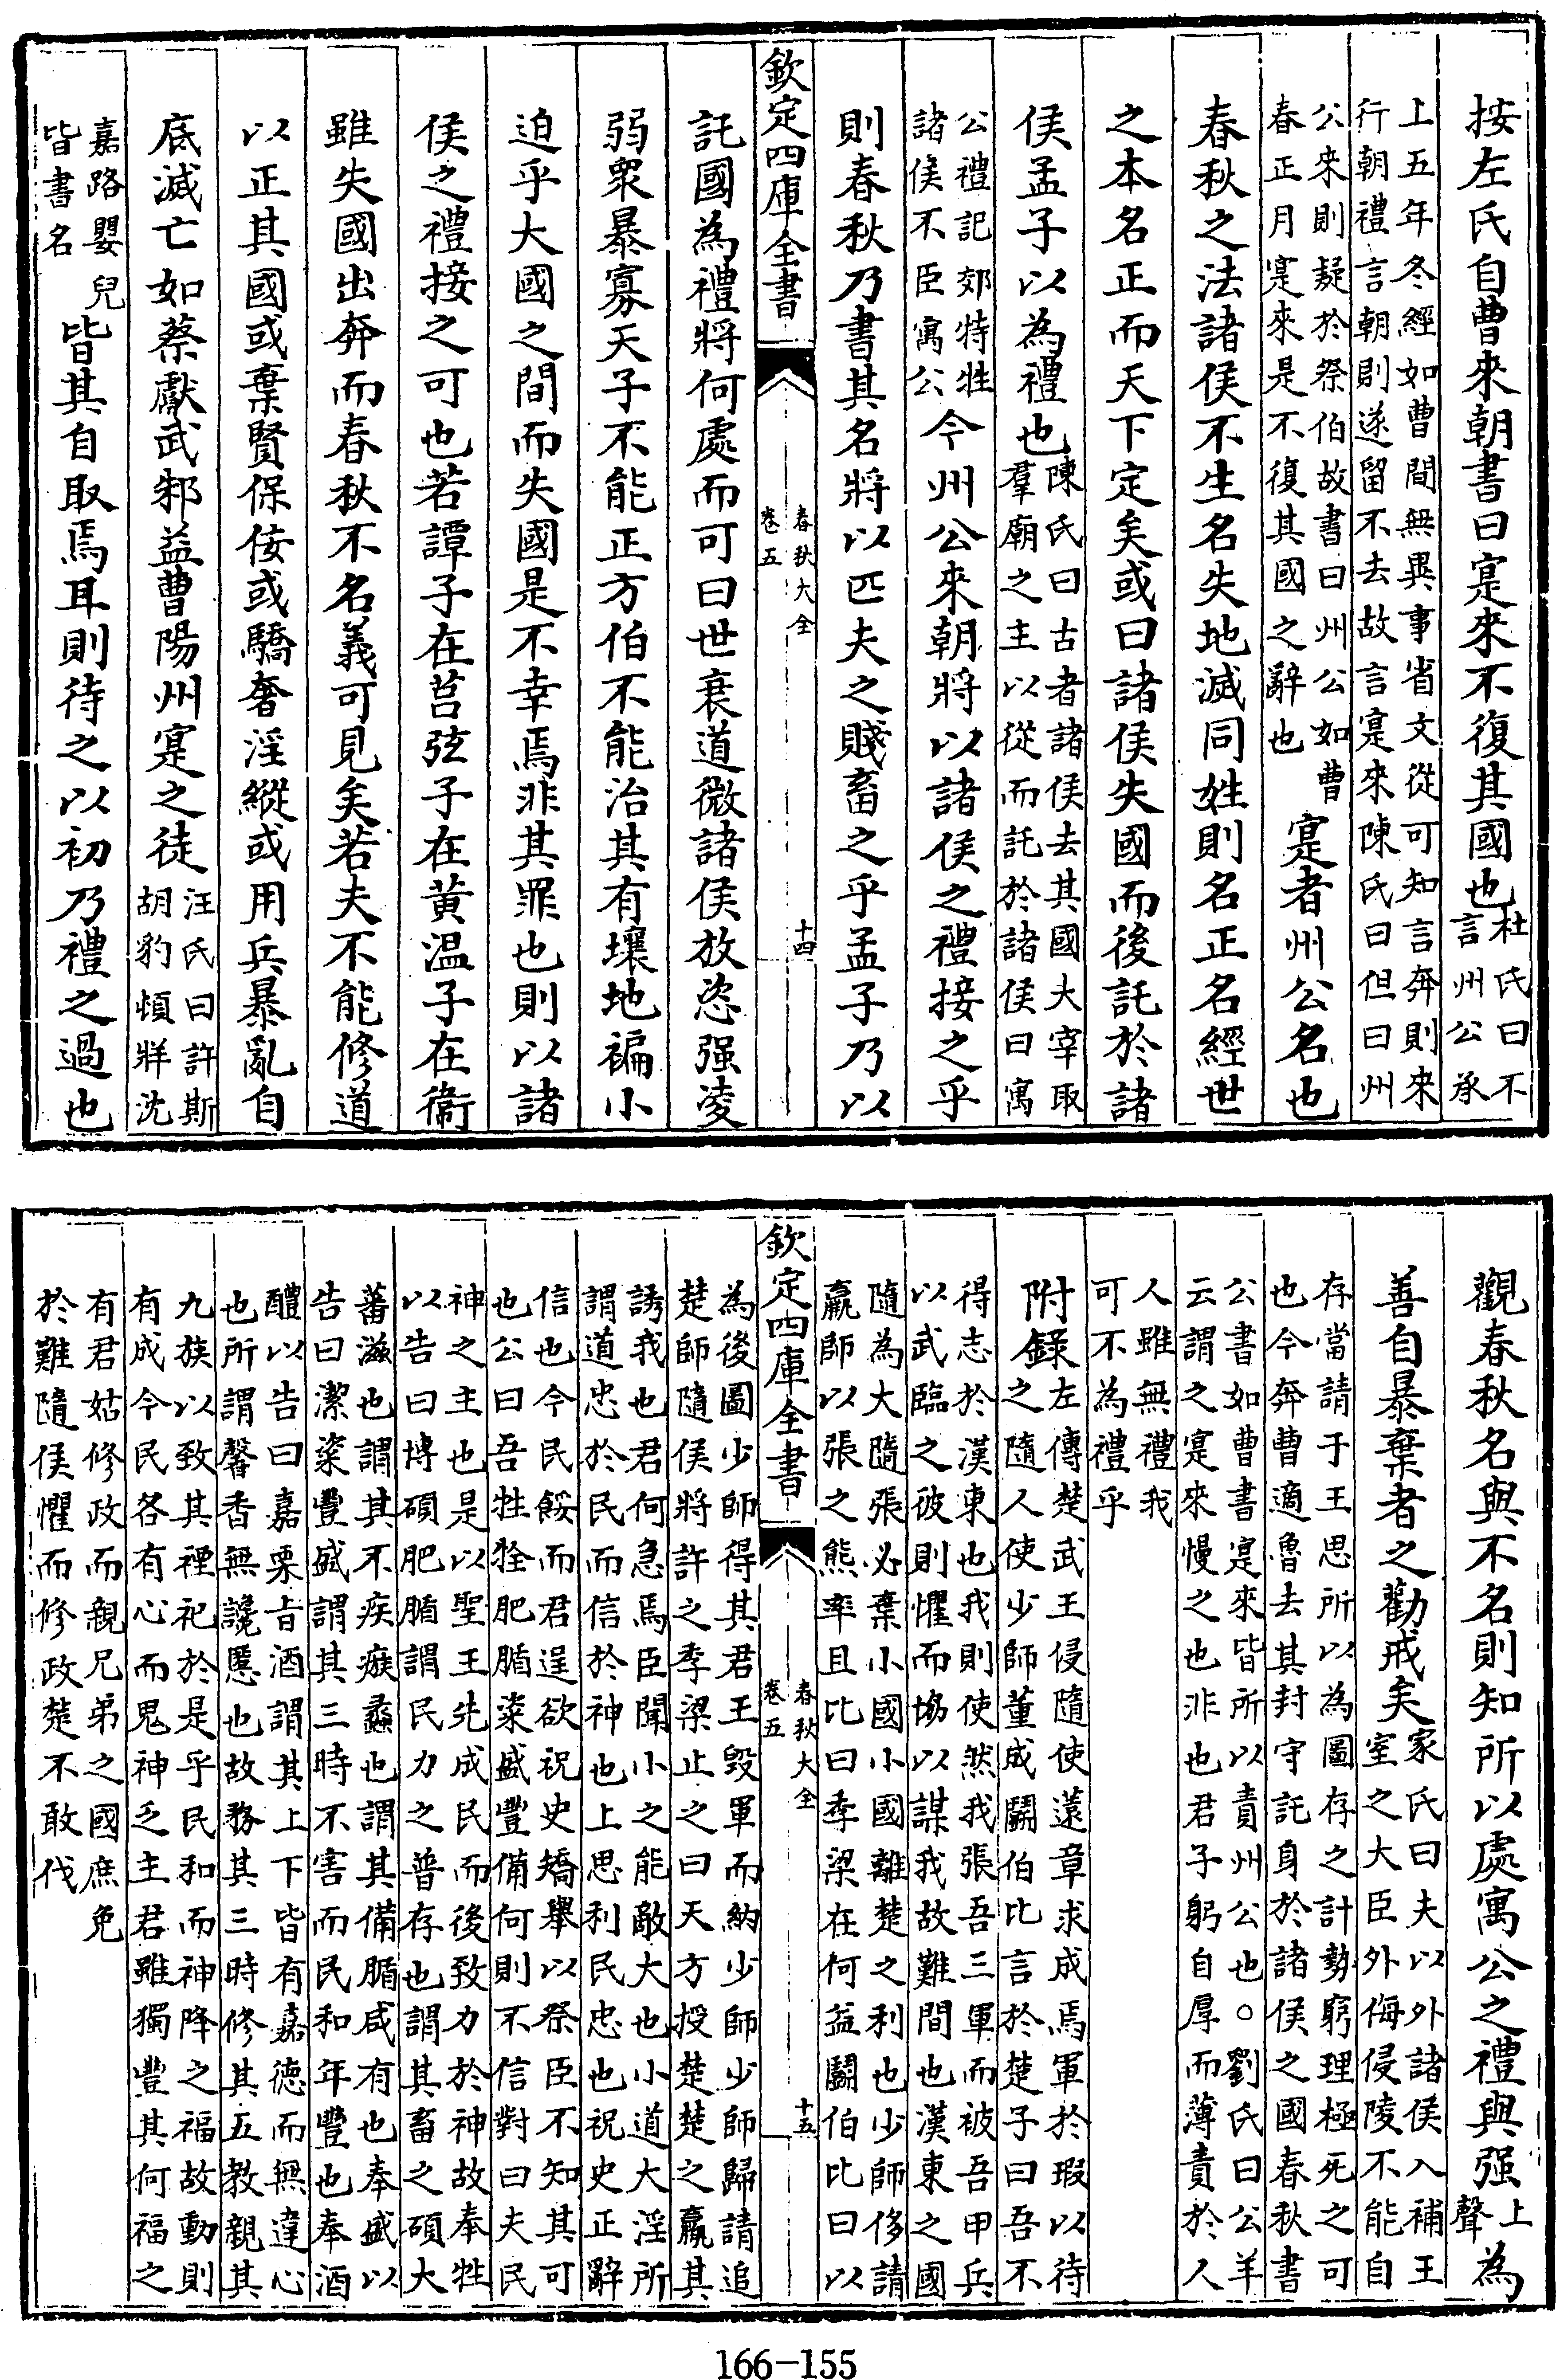 按左氏自曹來朝書曰寔來不復其國也杜氏曰不言州公承
上五年冬經如曹間無異事省文從可知言奔則來行朝禮言朝則遂留不去故言寔來陳氏曰但曰州
公來則疑於祭伯故書曰州公如曹春正月寔來是不復其國之辭也寔者州公名也
春秋之法諸侯不生名失地滅同姓則名正名經世
之本名正而天下定矣或曰諸侯失國而後託於諸
侯孟子以為禮也陳氏曰古者諸侯去其國大宰取羣廟之主以從而託於諸侯曰寓
公禮記郊特牲諸侯不臣寓公今州公來朝將以諸侯之禮接之乎
則春秋乃書其名將以匹夫之賤畜之乎孟子乃以
欽定四庫全書
春秋大全
卷五
十四
託國為禮將何處而可曰世衰道微諸侯放恣强凌
弱衆暴寡天子不能正方伯不能治其有壤地褊小
迫乎大國之間而失國是不幸焉非其罪也則以諸
侯之禮接之可也若譚子在莒弦子在黄温子在衞
雖失國出奔而春秋不名義可見矣若夫不能修道
以正其國或棄賢保佞或驕奢淫縱或用兵暴亂自
底滅亡如蔡獻武邾益曹陽州寔之徒汪氏曰許斯胡豹頓牂沈
嘉路嬰兒皆書名皆其自取焉耳則待之以初乃禮之過也
觀春秋名與不名則知所以處寓公之禮與强上聲為
善自暴棄者之勸戒矣家氏曰夫以外諸侯入補王室之大臣外侮侵陵不能自
存當請于王思所以為圖存之計勢窮理極死之可也今奔曹適魯去其封守託身於諸侯之國春秋書
公書如曹書寔來皆所以責州公也○劉氏曰公羊云謂之寔來慢之也非也君子躬自厚而薄責於人
人雖無禮我可不為禮乎
附錄左傳楚武王侵隨使薳章求成焉軍於瑕以待之隨人使少師董成鬬伯比言於楚子曰吾不
得志於漢東也我則使然我張吾三軍而被吾甲兵以武臨之彼則懼而協以謀我故難間也漢東之國
隨為大隨張必棄小國小國離楚之利也少師侈請羸師以張之熊率且比曰季梁在何益鬬伯比曰以
欽定四庫全書
春秋大全
卷五
十五
為後圖少師得其君王毀軍而納少師少師歸請追楚師隨侯將許之季梁止之曰天方授楚楚之羸其
誘我也君何急焉臣聞小之能敵大也小道大淫所謂道忠於民而信於神也上思利民忠也祝史正辭
信也今民餒而君逞欲祝史矯舉以祭臣不知其可也公曰吾牲牷肥腯粢盛豐備何則不信對曰夫民
神之主也是以聖王先成民而後致力於神故奉牲以告曰博碩肥腯謂民力之普存也謂其畜之碩大
蕃滋也謂其不疾瘯蠡也謂其備腯咸有也奉盛以告曰潔粢豐盛謂其三時不害而民和年豐也奉酒
醴以告曰嘉栗旨酒謂其上下皆有嘉德而無違心也所謂馨香無讒慝也故務其三時修其五教親其
九族以致其禋祀於是乎民和而神降之福故動則有成今民各有心而鬼神乏主君雖獨豐其何福之
有君姑修政而親兄弟之國庶免於難隨侯懼而修政楚不敢伐
166-155